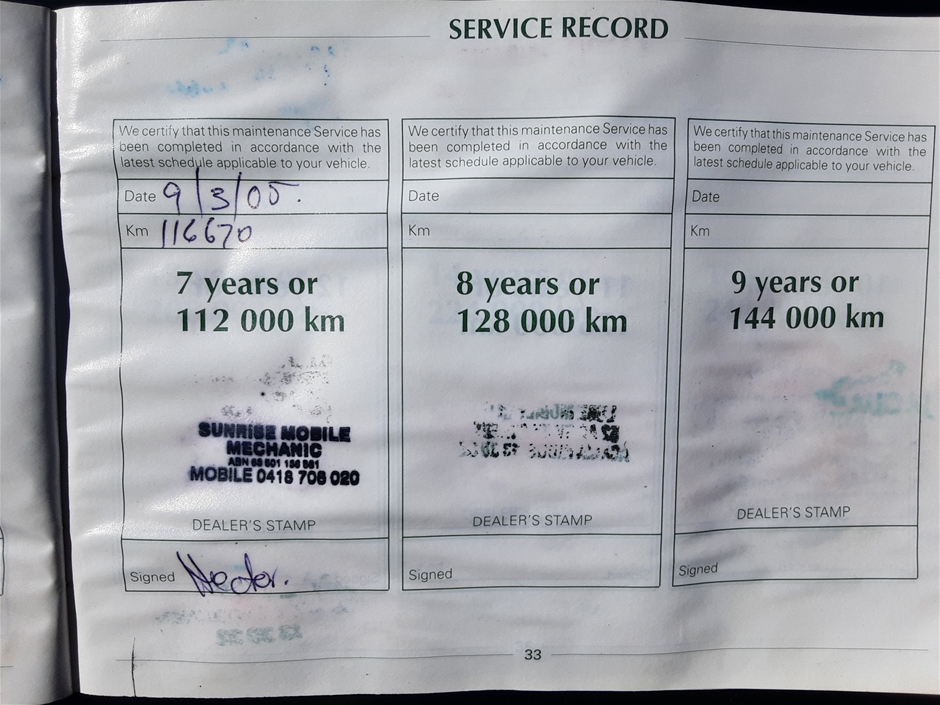 SERVICE RECORD
We certify that this maintenance Service has
been completed in accordance with the
latest schedule applicable to your vehicle.
Date 9/3/05.
Km 116670
7 years or
112 000 km
SUNRISE MOBILE
MECHANIC
ABN
MOBILE 0418 706 020
DEALER'S STAMP
Signed
We certify that this maintenance Service has
been completed in accordance with the
latest schedule applicable to your vehicle.
Date
Km
8 years or
128 000 km
DEALER'S STAMP
Signed
We certify that this maintenance Service has
been completed in accordance with the
latest schedule applicable to your vehicle.
Date
Km
9 years or
144 000 km
DEALER'S STAMP
Signed
33